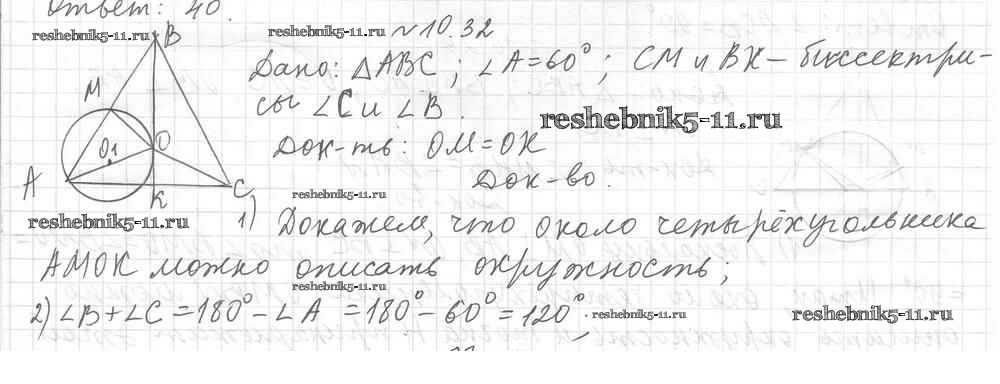 Ответ: 40.
reshebnik5-11.ru
reshebnik5-11.ru
№10.32
B
Дано: △ABC; ∠A=60°; CM и BK – биссектри-
M
сы ∠C и ∠B.
reshebnik5-11.ru
Док-ть: OM=OK
O1
O
A
Док-во.
K
C
reshebnik5-11.ru
reshebnik5-11.ru
1) Докажем, что около четырёхугольника
AMOK можно описать окружность;
reshebnik5-11.ru
2) ∠B+∠C=180°-∠A=180°-60°=120°;
reshebnik5-11.ru
reshebnik5-11.ru